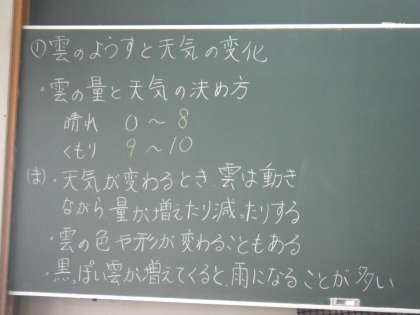 ① 雲のようすと天気の変化
・雲の量と天気の決め方
晴れ 0〜8
くもり 9〜10
ま ・天気が変わるとき、雲は動き
ながら、量が増えたり減ったりする
・雲の色や形が変わることもある
・黒っぽい雲が増えてくると、雨になることが多い